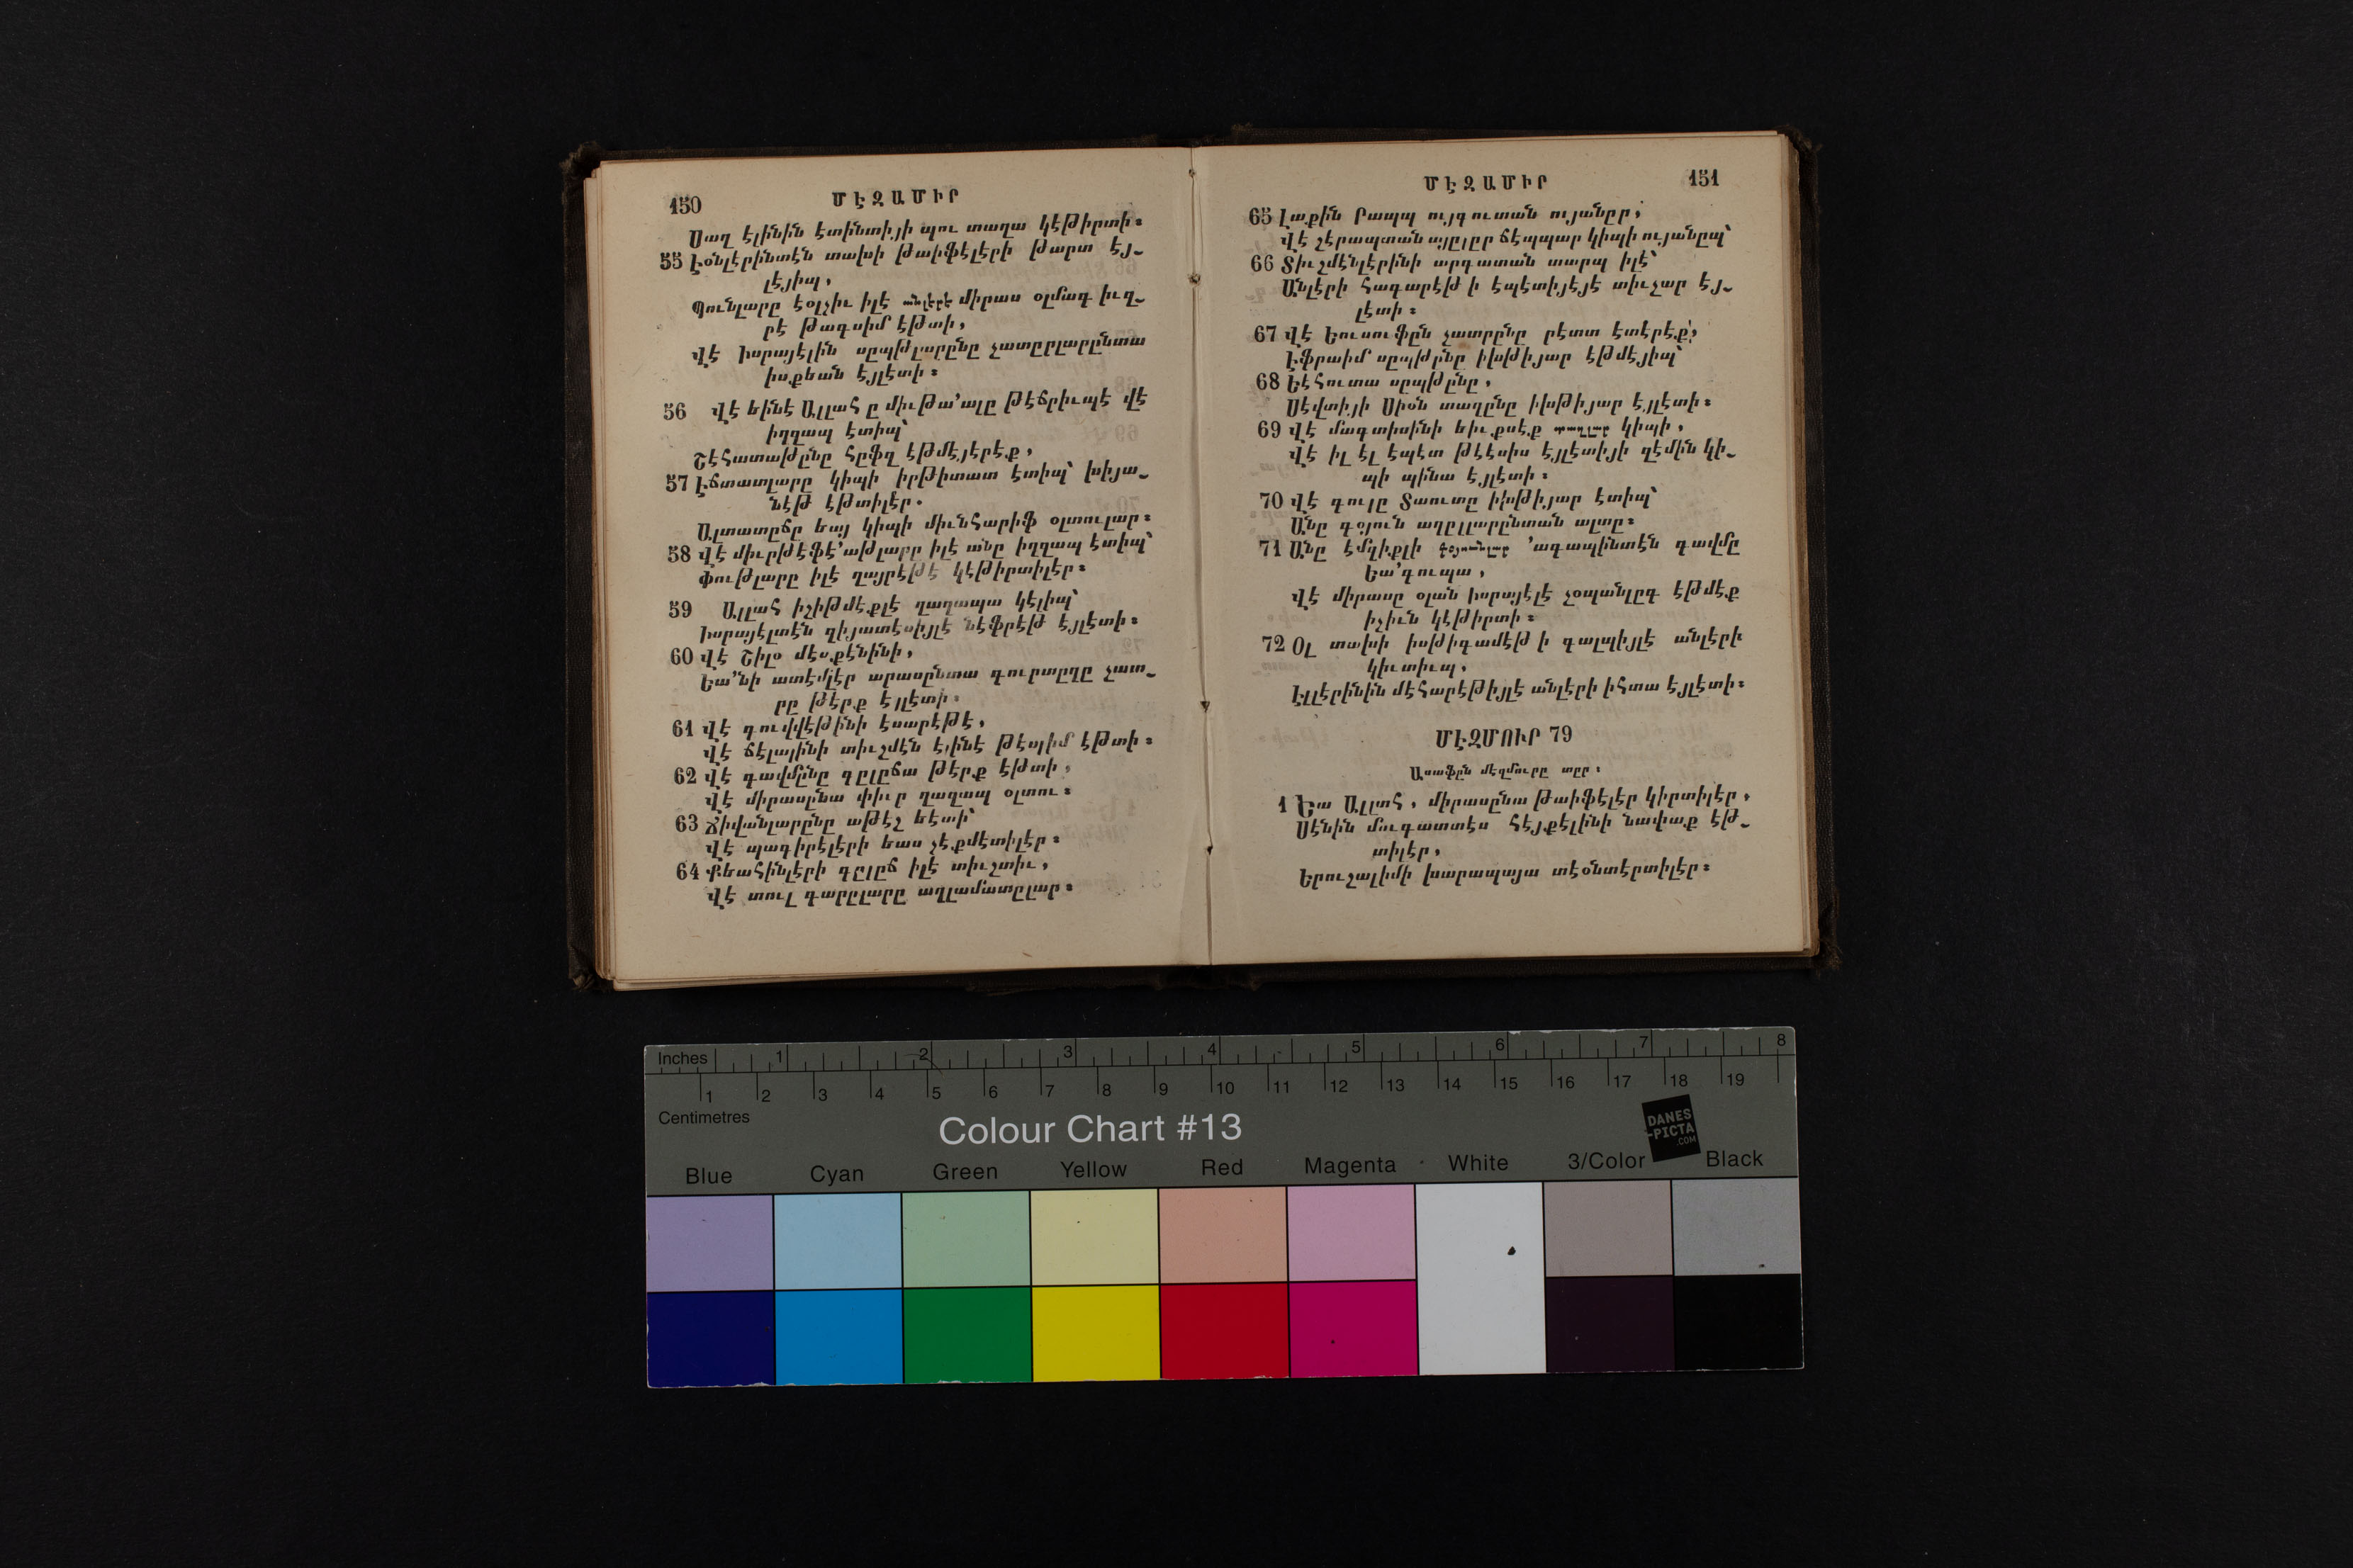 150 ՄԷԶԱՄԻՐ
Սաղ էլինին էտինտիյի պու տաղա կէթիրտի։
55 Էօնլէրինտէն տախի թաիֆէլէրի թարտ էյ֊
լէյիպ,
Պունլարը էօլչիւ իլէ անլէրէ միրաս օլմագ իւզ֊
րէ թագսիմ էթտի,
Վէ Իսրայէլին սըպթլարընը չատըրլարընտա
իսքեան էյլէտի։
56 Վէ եինէ Ալլահ ը միւթա՚ալը թէճրիւպէ վէ
իղզապ էտիպ՝
Շէհատաթընը հըֆզ էթմէյէրէք,
57 Էճտատլարը կիպի իրթիտատ էտիպ՝ խիյա֊
նէթ էթտիլէր.
Ալտատըճը եայ կիպի միւնհարիֆ օլտուլար։
58 Վէ միւրթէֆէ՚աթլարը իլէ անը իղզապ էտիպ՝
Փութլարը իլէ ղայրէթէ կէթիրտիլէր։
59 Ալլահ իշիթմէքլէ ղաղապա կէլիպ՝
Իսրայէլտէն զիյատէսիյլէ նէֆրէթ էյլէտի։
60 Վէ Շիլօ մէսքէնինի,
Եա՚նի ատէմլէր արասընտա գուրտըղը չատ֊
րը թէրք էյլէտի.
61 Վէ գուվվէթինի էսարէթէ,
Վէ ճէլալինի տիւշմէն էլինէ թէսլիմ էթտի։
62 Վէ գավմընը գըլըճա թէրք էթտի,
Վէ միրասընա փիւր ղաղապ օլտու։
63 Ճիվանլարընը աթէշ եէտի՝
Վէ պագիրէլէրի եաս չէքմէտիլէր։
64 Քեահինլէրի գըլըճ իլէ տիւշտիւ,
Վէ տուլ գարըլարը աղլամատըլար։
ՄԷԶԱՄԻՐ 151
65 Լաքին Րապպ ույգուտան ույանըր,
Վէ շէրապտան այըլըր ճէպպար կիպի ույանըպ՝
66 Տիւշմէնլէրինի արդատան տարպ իլէ՝
Անլէրի հագարէթ ի էպէտիյէյէ տիւչար էյ֊
լէտի։
67 Վէ Եուսուֆըն չատրընը րէտտ էտէրէք,
Էֆրաիմ սըպթընը իխթիյար էթմէյիպ՝
68 Եէհուտա սըպթընը,
Սէվտիյի Սիօն տաղընը իխթիյար էյլէտի։
69 Վէ մագտիսինի եիւքսէք տաղլար կիպի,
Վէ իլ էլ էպէտ թէէսիս էյլէտիյի զէմին կի֊
պի պինա էյլէտի։
70 Վէ գուլը Տաուտը իխթիյար էտիպ՝
Անը գօյուն աղըլլարընտան ալտը։
71 Անը էմզիքլի գօյունլար ՚ագապինտէն գավմը
Եա՚գուպա,
Վէ միրասը օլան Իսրայէլէ չօպանլըգ էթմէք
իչիւն կէթիրտի։
72 Օլ տախի իսթիգամէթ ի գալպիյլէ անլէրի
կիւտիւպ,
Էլլէրինին մէհարէթիյլէ անլէրի իհտա էյլէտի։
ՄԷԶՄՈՒՐ 79
Ասաֆըն մէզմուրը տըր.
1 Եա Ալլահ, միրասընա թաիֆէլէր կիրտիլէր,
Սէնին մուգատտէս հէյքէլինի նափաք էթ֊
տիլէր,
Երուշալիմի խարապայա տէօնտէրտիլէր։
Inches 1 2 3 4 5 6 7 8
1 2 3 4 5 6 7 8 9 10 11 12 13 14 15 16 17 18 19
Centimetres
Colour Chart #13
DANES
-PICTA
.COM
Blue Cyan Green Yellow Red Magenta White 3/Color Black